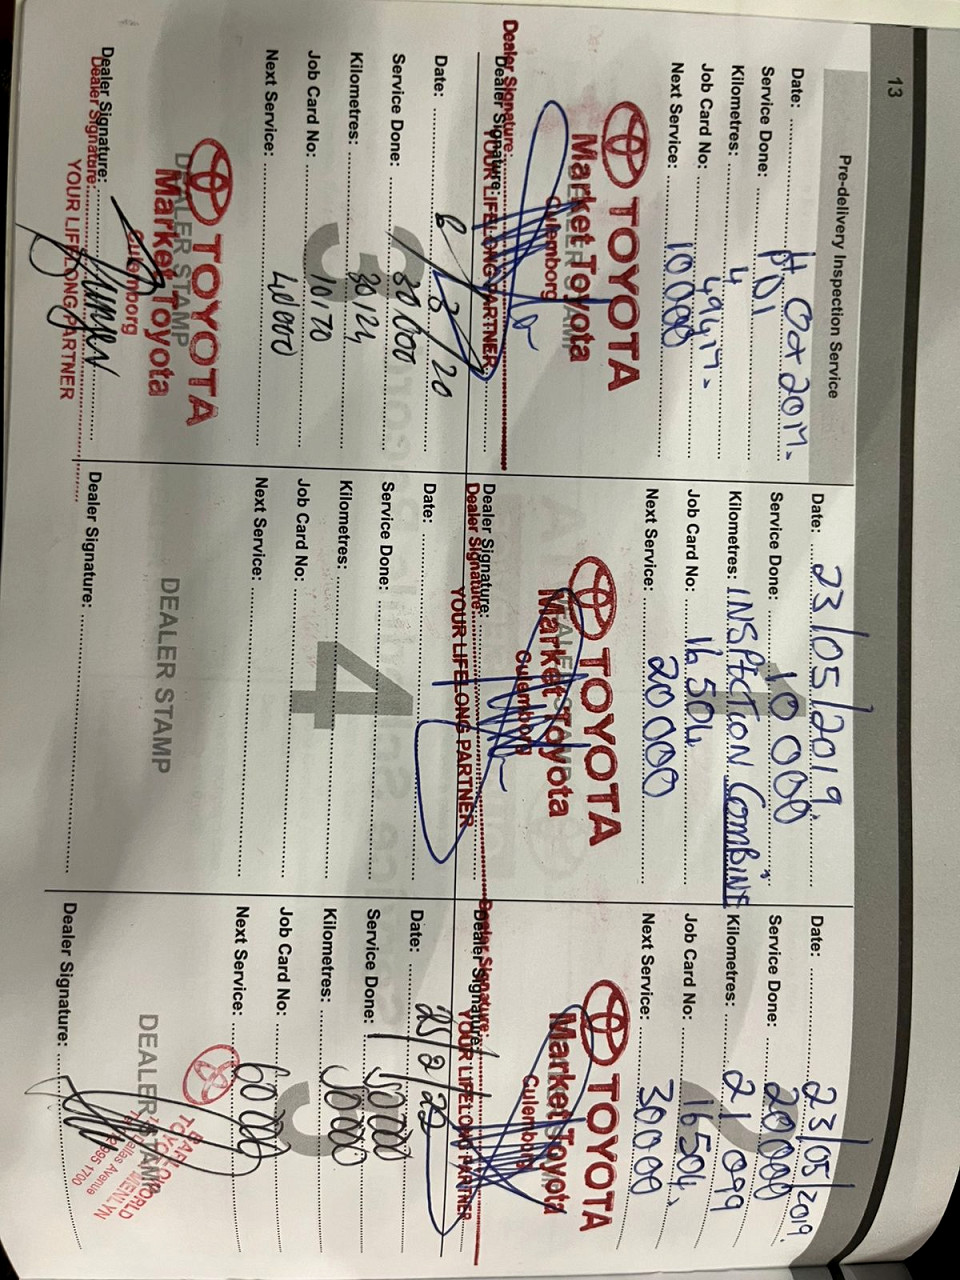 13
Pre-delivery Inspection Service
Date: Oct 2017.
Service Done: PDI
Kilometres: 4
Job Card No: 49417.
Next Service: 10 000
TOYOTA
Market Toyota
Culemborg
Dealer Signature:
Dealer Signature:
YOUR LIFELONG PARTNER
1
Date: 23/05/2019.
Service Done: 10 000
Kilometres: INSPECTION COMBINE
Job Card No: 16504
Next Service: 20 000
TOYOTA
Market Toyota
Culemborg
Dealer Signature:
Dealer Signature:
YOUR LIFELONG PARTNER
2
Date: 23/05/2019.
Service Done: 20 000
Kilometres: 21 099
Job Card No: 16504
Next Service: 30 000
TOYOTA
Market Toyota
Culemborg
Dealer Signature:
Dealer Signature:
YOUR LIFELONG PARTNER
3
Date: 6/3/20
Service Done: 30 000
Kilometres: 30124
Job Card No: 10170
Next Service: 40 000
DEALER STAMP
TOYOTA
Market Toyota
Culemborg
Dealer Signature:
Dealer Signature:
YOUR LIFELONG PARTNER
4
Date:
Service Done:
Kilometres:
Job Card No:
Next Service:
DEALER STAMP
Dealer Signature:
5
Date: 25/2/22
Service Done: 50000
Kilometres: 50000
Job Card No:
Next Service: 60 000
DEALER STAMP
BARLOWORLD
TOYOTA
Dallas Avenue
995 1700
Dealer Signature: